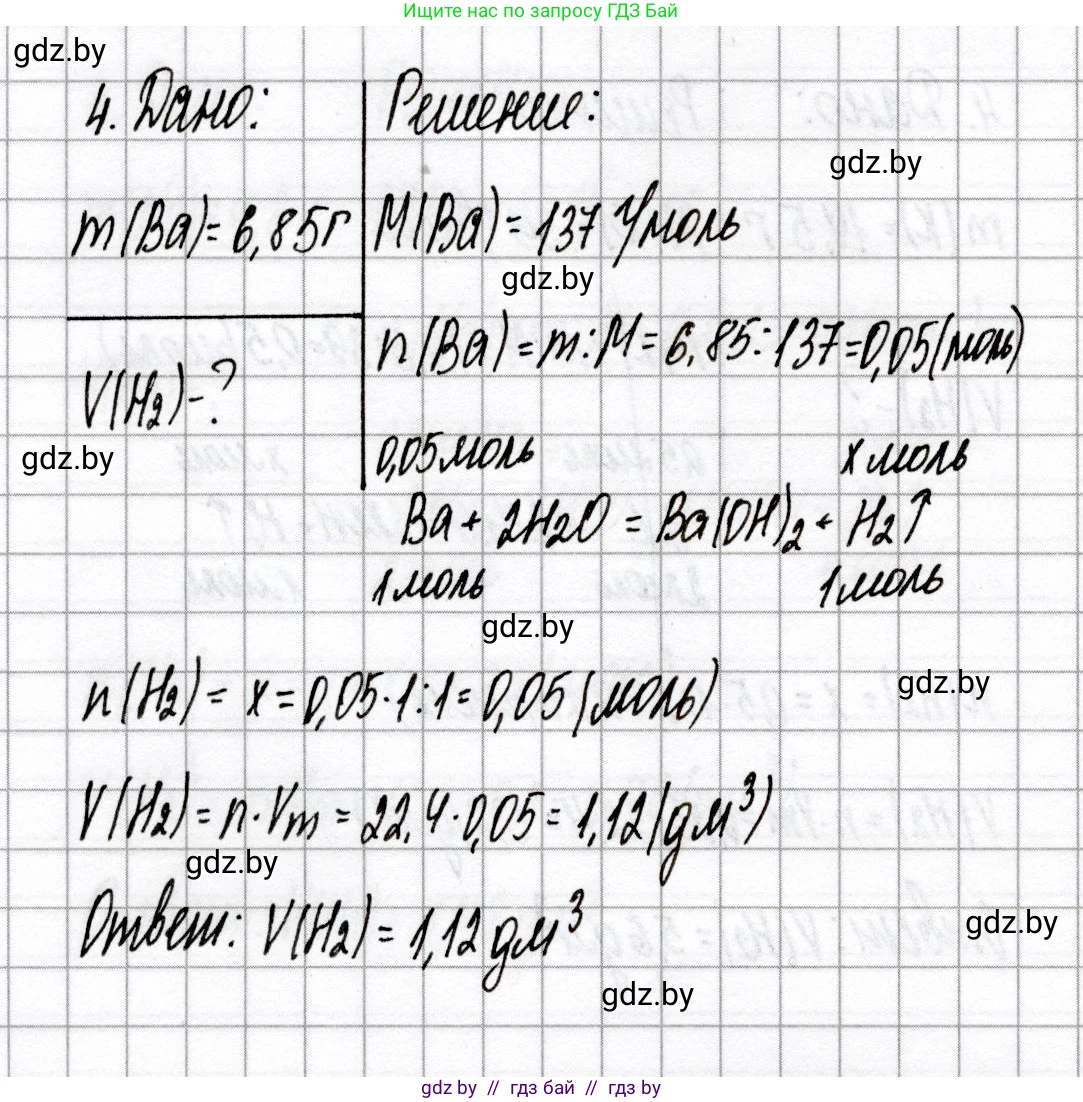 Ищите нас по запросу ГДЗ Бай
gdz.by
4. Дано:
Решение:
gdz.by
m(Ba)=6,85г
M(Ba)=137 г/моль
gdz.by
n(Ba)=m:M=6,85:137=0,05(моль)
V(H₂)-?
gdz.by
0,05моль
x моль
Ba+2H₂O=Ba(OH)₂+H₂↑
1моль
1моль
gdz.by
n(H₂)=x=0,05·1:1=0,05(моль)
gdz.by
V(H₂)=n·Vm=22,4·0,05=1,12(дм³)
gdz.by
Ответ: V(H₂)=1,12 дм³
gdz.by
gdz.by
gdz by // гдз бай // gdz by